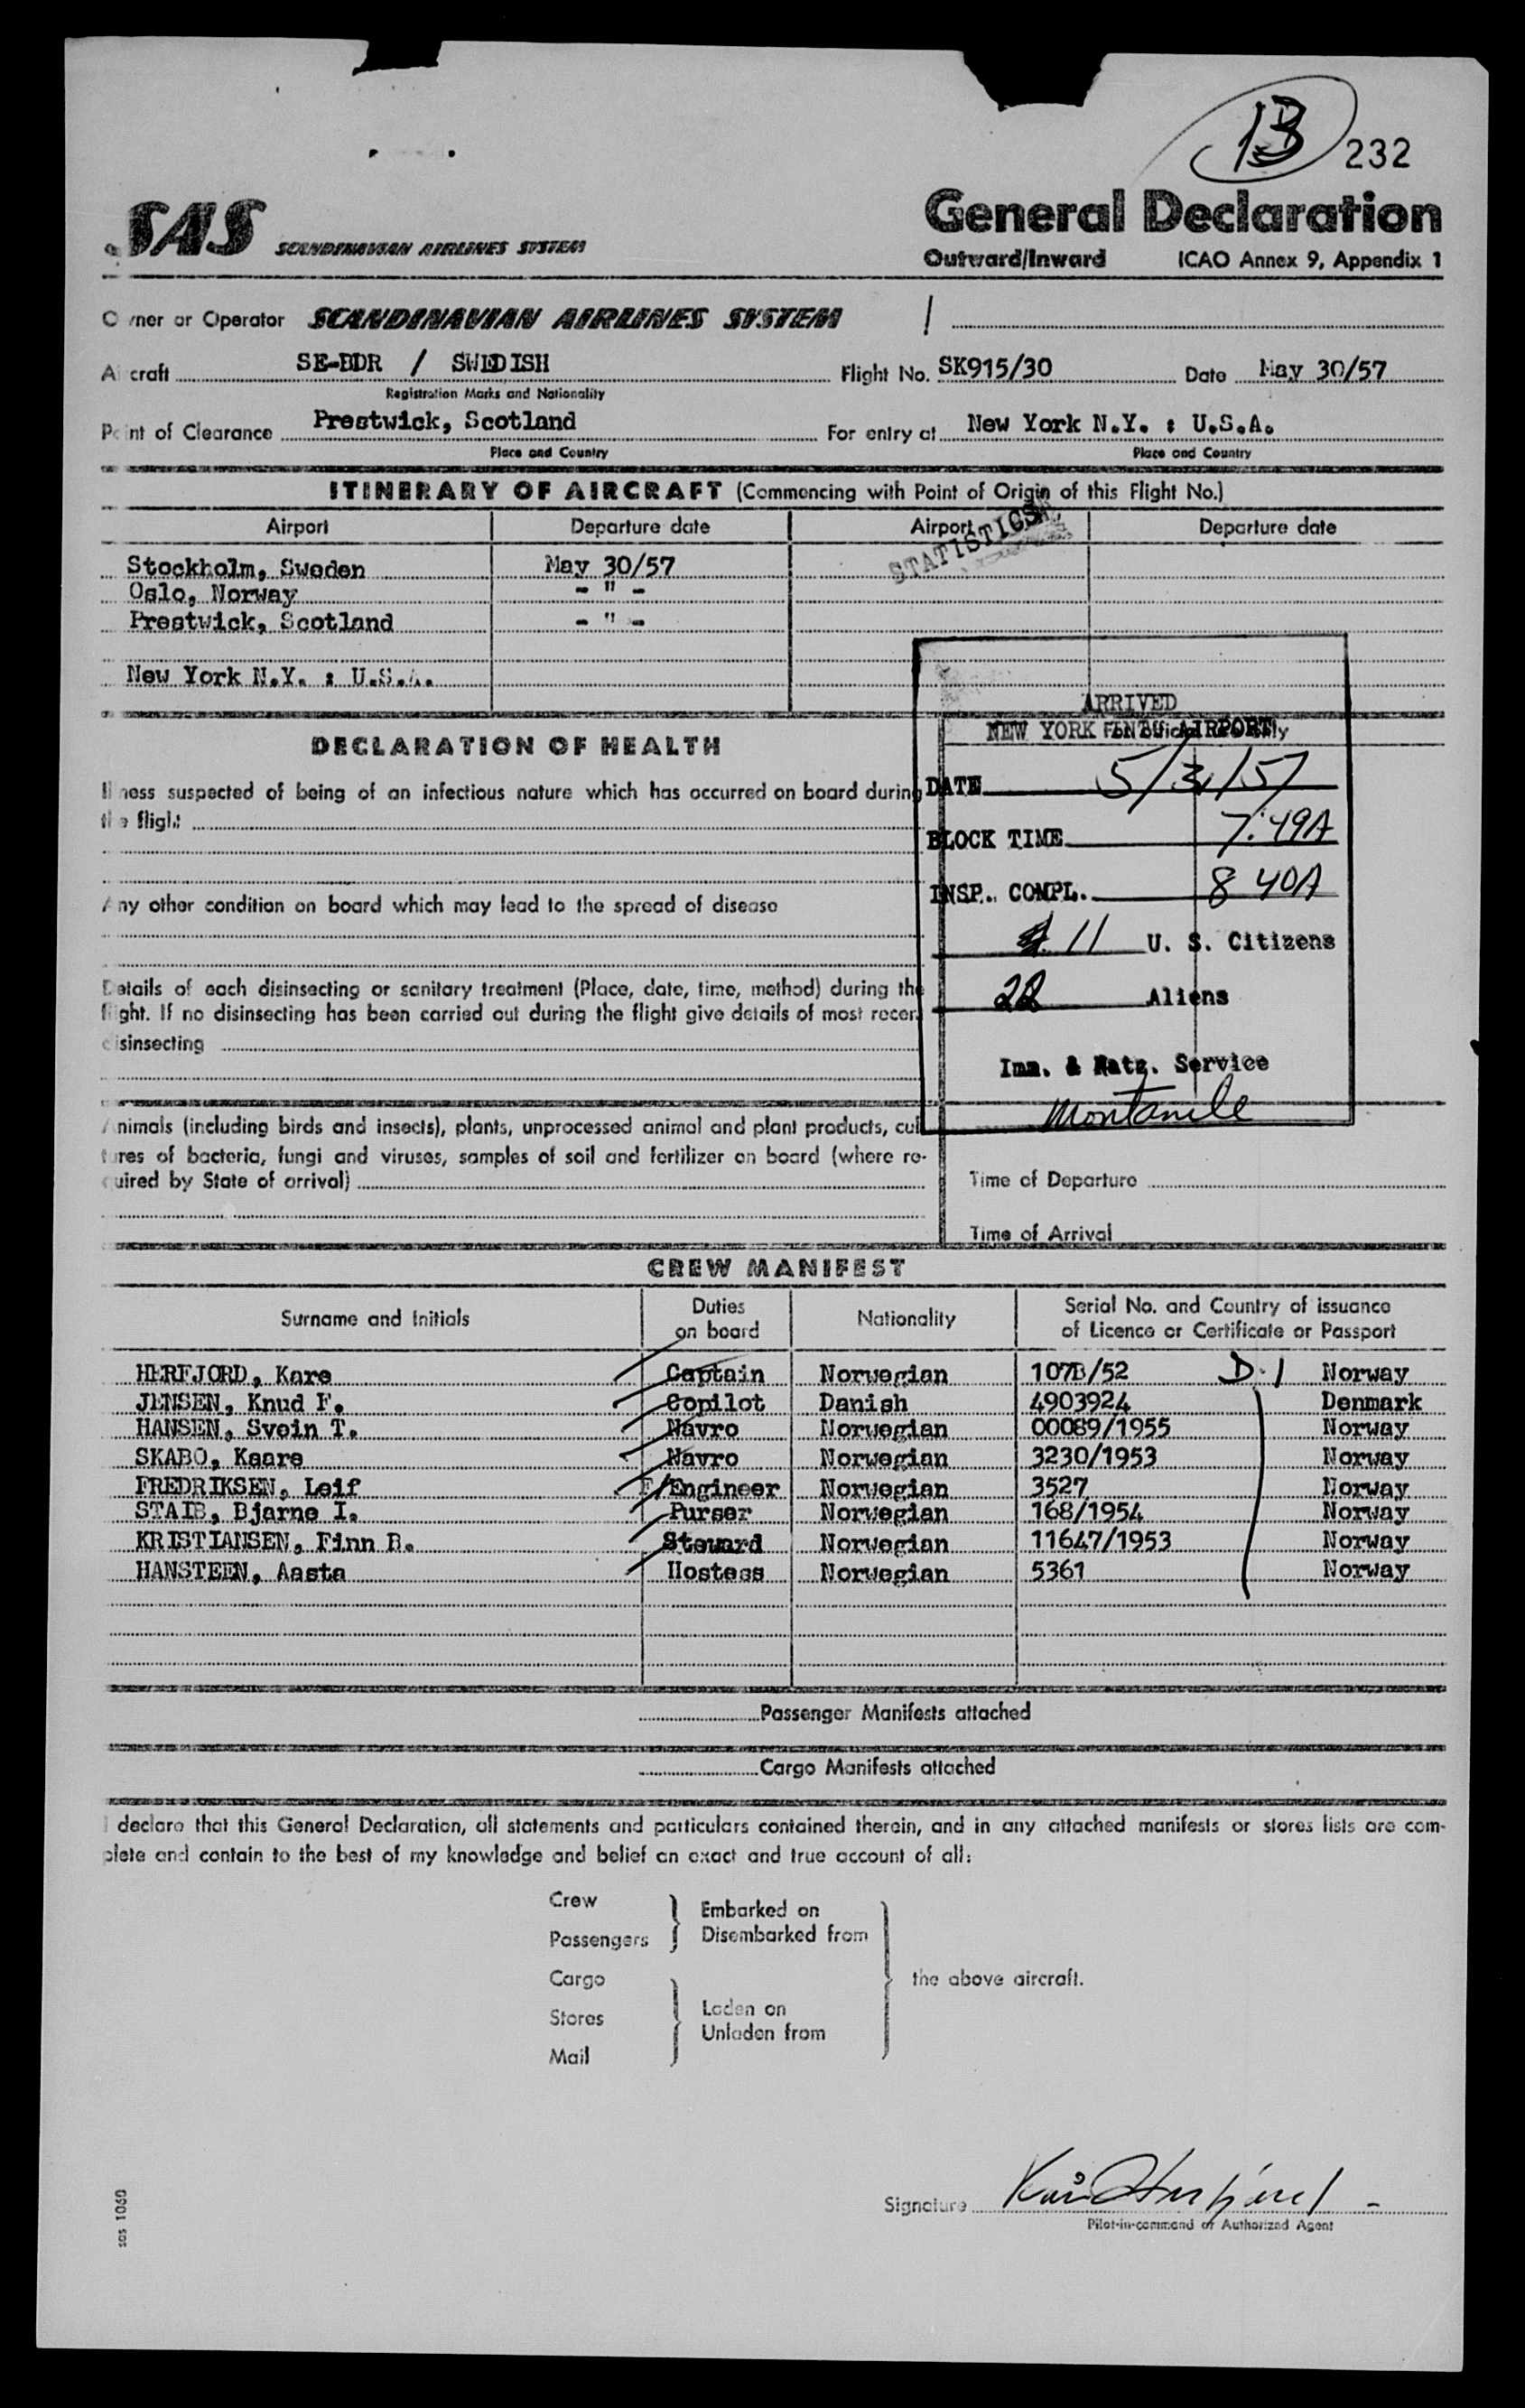 13 232
SAS SCANDINAVIAN AIRLINES SYSTEM
General Declaration
Outward/Inward ICAO Annex 9, Appendix 1
Owner or Operator SCANDINAVIAN AIRLINES SYSTEM /
Aircraft SE-BDR / SWEDISH Flight No. SK915/30 Date May 30/57
Registration Marks and Nationality
Point of Clearance Prestwick, Scotland For entry at New York N.Y. : U.S.A.
Place and Country Place and Country
ITINERARY OF AIRCRAFT (Commencing with Point of Origin of this Flight No.)
Airport Departure date Airport Departure date
STATISTICS
Stockholm, Sweden May 30/57
Oslo, Norway - " -
Prestwick, Scotland - " -
New York N.Y. : U.S.A.
DECLARATION OF HEALTH
Illness suspected of being of an infectious nature which has occurred on board during
the flight
Any other condition on board which may lead to the spread of disease
Details of each disinsecting or sanitary treatment (Place, date, time, method) during the
flight. If no disinsecting has been carried out during the flight give details of most recent
disinsecting
Animals (including birds and insects), plants, unprocessed animal and plant products, cul-
tures of bacteria, fungi and viruses, samples of soil and fertilizer on board (where re-
quired by State of arrival)
ARRIVED
NEW YORK AIRPORT
DATE 5/31/57
BLOCK TIME 7:49A
INSP. COMPL. 8 40A
11 U. S. Citizens
22 Aliens
Imm. & Natz. Service
Montanile
Time of Departure
Time of Arrival
CREW MANIFEST
Surname and Initials Duties on board Nationality Serial No. and Country of issuance of Licence or Certificate or Passport
HERFJORD, Kare Captain Norwegian 107B/52 D.1 Norway
JENSEN, Knud F. Copilot Danish 4903924 Denmark
HANSEN, Svein T. Navro Norwegian 00089/1955 Norway
SKABO, Kaare Navro Norwegian 3230/1953 Norway
FREDRIKSEN, Leif F/Engineer Norwegian 3527 Norway
STAIB, Bjarne I. Purser Norwegian 168/1954 Norway
KRISTIANSEN, Finn B. Steward Norwegian 11647/1953 Norway
HANSTEEN, Aasta Hostess Norwegian 5361 Norway
Passenger Manifests attached
Cargo Manifests attached
I declare that this General Declaration, all statements and particulars contained therein, and in any attached manifests or stores lists are com-
plete and contain to the best of my knowledge and belief an exact and true account of all:
Crew
Passengers
Embarked on
Disembarked from
Cargo
Stores
Mail
Laden on
Unladen from
the above aircraft.
Signature Kåre Herfjord
Pilot-in-command or Authorized Agent
sas 1060